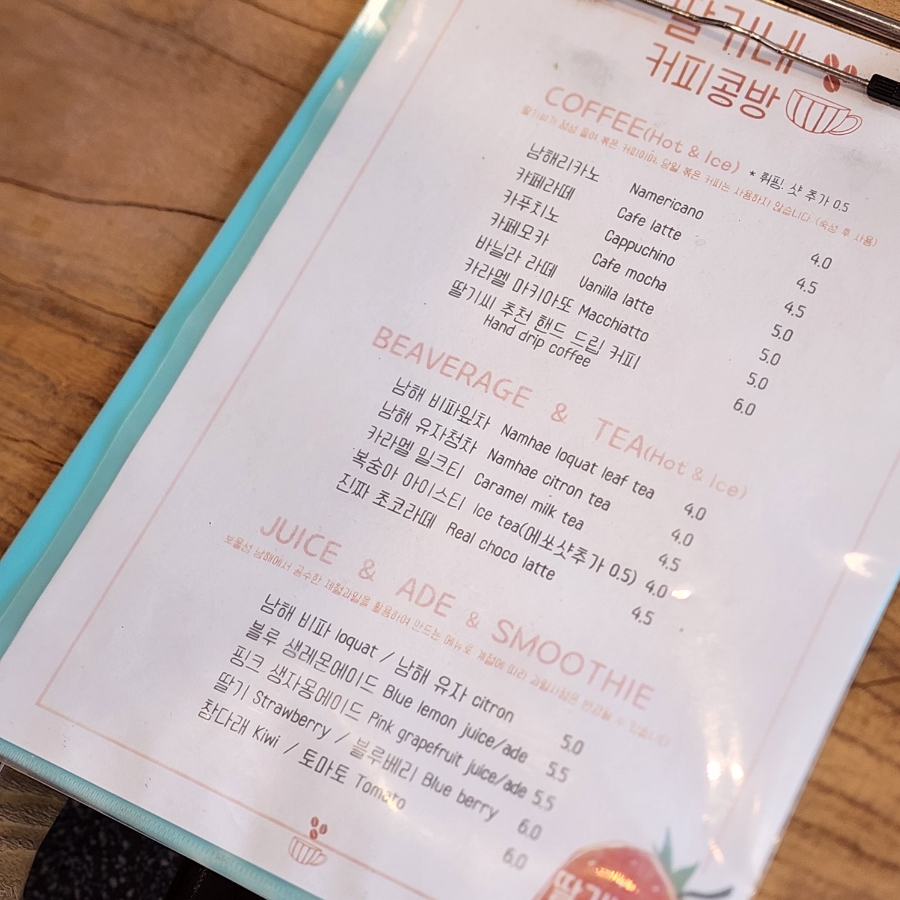 딸기네
커피콩방
COFFEE(Hot & Ice) * 휘핑, 샷 추가 0.5
딸기씨가 정성 들여 볶은 커피이며, 당일 볶은 커피는 사용하지 않습니다. (숙성 후 사용)
남해리카노 Namericano 4.0
캬페라떼 Cafe latte 4.5
카푸치노 Cappuchino 4.5
카페모카 Cafe mocha 5.0
바닐라 라떼 Vanilla latte 5.0
카라멜 마키아또 Macchiatto 5.0
딸기씨 추천 핸드 드립 커피 6.0
Hand drip coffee
BEAVERAGE & TEA(Hot & Ice)
남해 비파잎차 Namhae loquat leaf tea 4.0
남해 유자청차 Namhae citron tea 4.0
카라멜 밀크티 Caramel milk tea 4.5
복숭아 아이스티 Ice tea(에쏘샷추가 0.5) 4.0
진짜 초코라떼 Real choco latte 4.5
JUICE & ADE & SMOOTHIE
보물섬 남해에서 공수한 제철과일을 활용하여 만드는 메뉴로 계절에 따라 과일사정은 변경될 수 있습니다
남해 비파 loquat / 남해 유자 citron 5.0
블루 생레몬에이드 Blue lemon juice/ade 5.5
핑크 생자몽에이드 Pink grapefruit juice/ade 5.5
딸기 Strawberry / 블루베리 Blue berry 6.0
참다래 Kiwi / 토마토 Tomato 6.0